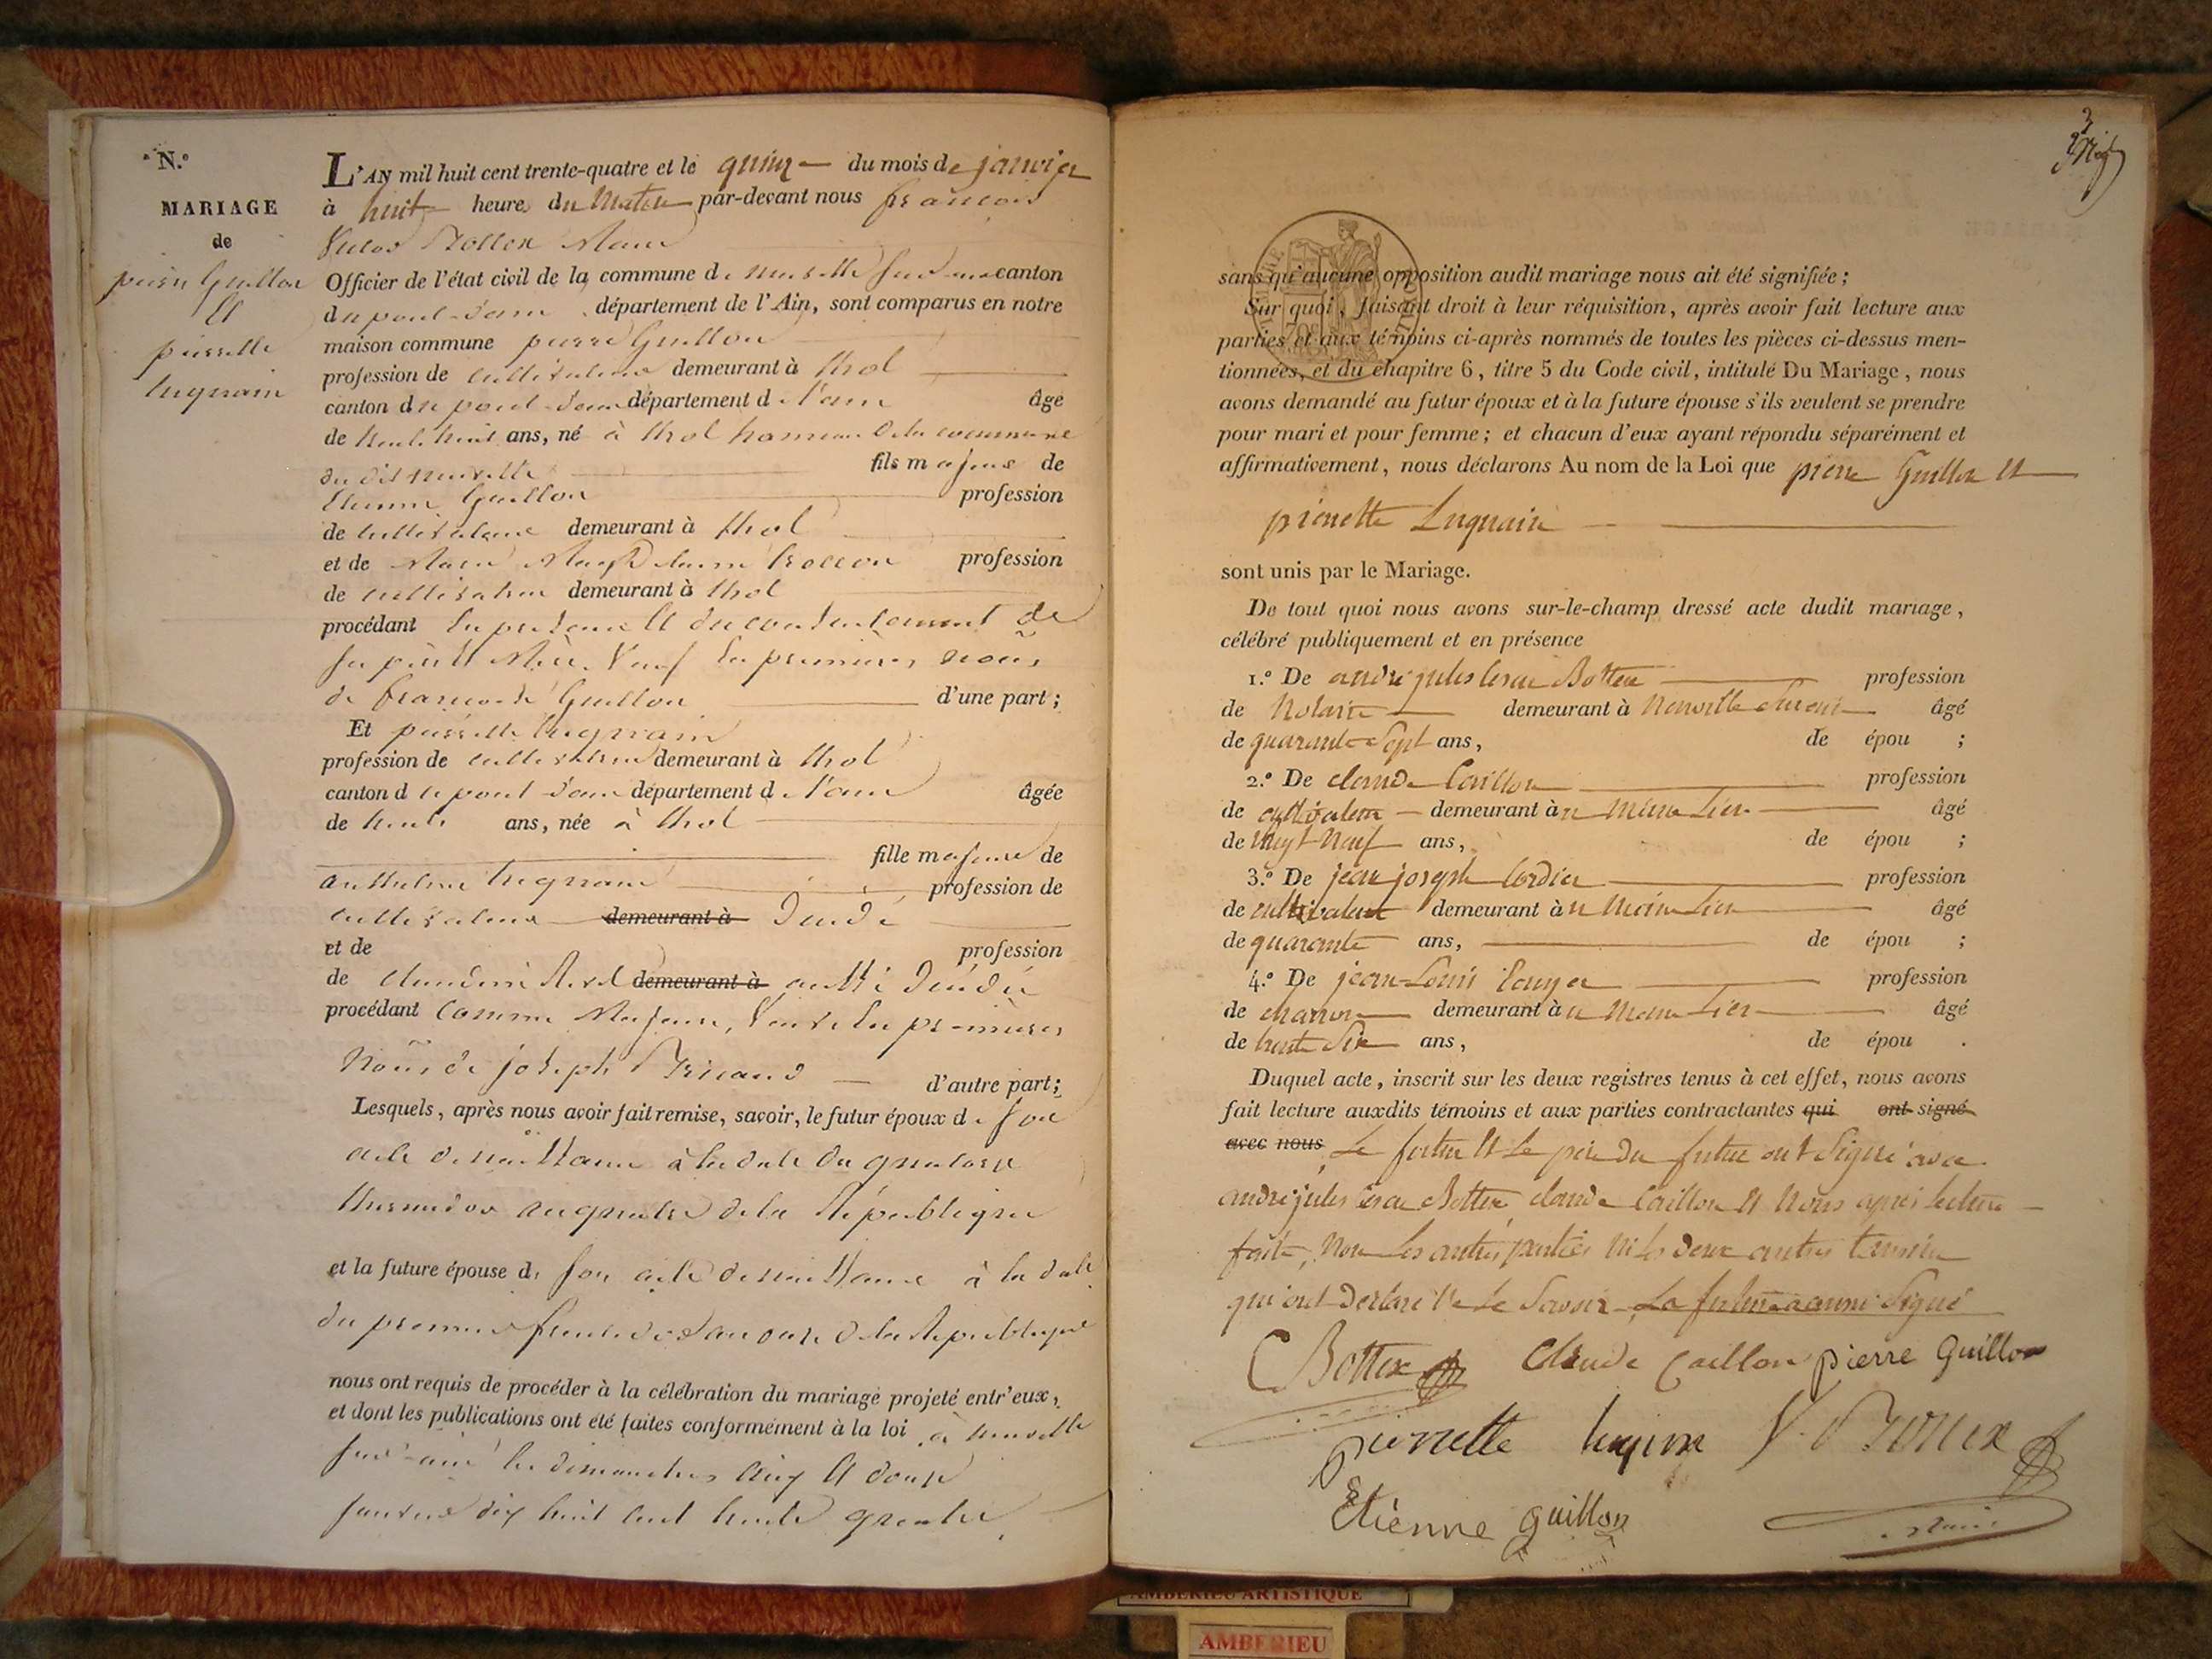 N.º
MARIAGE
de
pierre Guillon
Et
pierrette
luquain
L'AN mil huit cent trente-quatre et le quinze du mois de janvier
à huit heures du Matin par-devant nous françois
Victor Bottex Maire
Officier de l'état civil de la commune de neuville sur ain canton
du pont-d'ain département de l'Ain, sont comparus en notre
maison commune pierre Guillon
profession de cultivateur demeurant à thol
canton du pont-d'ain département de l'ain âgé
de trente huit ans, né à thol hameau de la commune
du dit neuville fils majeur de
Etienne Guillon profession
de cultivateur demeurant à thol
et de Marie profession
de cultivatrice demeurant à thol
procédant en présence et du consentement de
ses père et Mère. Veuf en premières noces
de françoise Guillon d'une part;
Et pierrette luquain
profession de cultivatrice demeurant à thol
canton du pont-d'ain département de l'ain âgée
de trente ans, née à thol
fille majeure de
anthelme luquain profession de
cultivateur demeurant à décédé
et de profession
de claudine demeurant à aussi décédée
procédant comme Majeure, Veuve en premières
Noces de joseph d'autre part;
Lesquels, après nous avoir fait remise, savoir, le futur époux de son
acte de naissance à la date du quatorze
thermidor an quatre de la République
et la future épouse de son acte de naissance à la date
du premier fructidor an onze de la République
nous ont requis de procéder à la célébration du mariage projeté entr'eux,
et dont les publications ont été faites conformément à la loi à neuville
sur ain les dimanches cinq et douze
janvier dix huit cent trente quatre
3
sans qu'aucune opposition audit mariage nous ait été signifiée;
Sur quoi, faisant droit à leur réquisition, après avoir fait lecture aux
parties et aux témoins ci-après nommés de toutes les pièces ci-dessus men-
tionnées, et du chapitre 6, titre 5 du Code civil, intitulé Du Mariage, nous
avons demandé au futur époux et à la future épouse s'ils veulent se prendre
pour mari et pour femme; et chacun d'eux ayant répondu séparément et
affirmativement, nous déclarons Au nom de la Loi que pierre Guillon et
pierrette Luquain
sont unis par le Mariage.
De tout quoi nous avons sur-le-champ dressé acte dudit mariage,
célébré publiquement et en présence
1.º De andré jules César Bottex profession
de Notaire demeurant à Neuville sur ain âgé
de quarante Sept ans, de épou ;
2.º De claude Caillon profession
de cultivateur demeurant à u même Lieu âgé
de vingt Neuf ans, de épou ;
3.º De jean joseph Cordier profession
de cultivateur demeurant à u même Lieu âgé
de quarante ans, de épou ;
4.º De jean-Louis profession
de charron demeurant à u même Lieu âgé
de trente Six ans, de épou .
Duquel acte, inscrit sur les deux registres tenus à cet effet, nous avons
fait lecture auxdits témoins et aux parties contractantes qui ont signé
avec nous Le futur et Le père du futur ont Signé avec
andré jules César Bottex claude Caillon et Nous après lecture
faite, Non Les autres parties ni Les deux autres témoins
qui ont déclaré Ne Le Savoir La future a aussi Signé
C Bottex Claude Caillon pierre Guillon
pierrette V. Bottex
Etienne guillon
Maire
AMBERIEU ARTISTIQUE
AMBERIEU